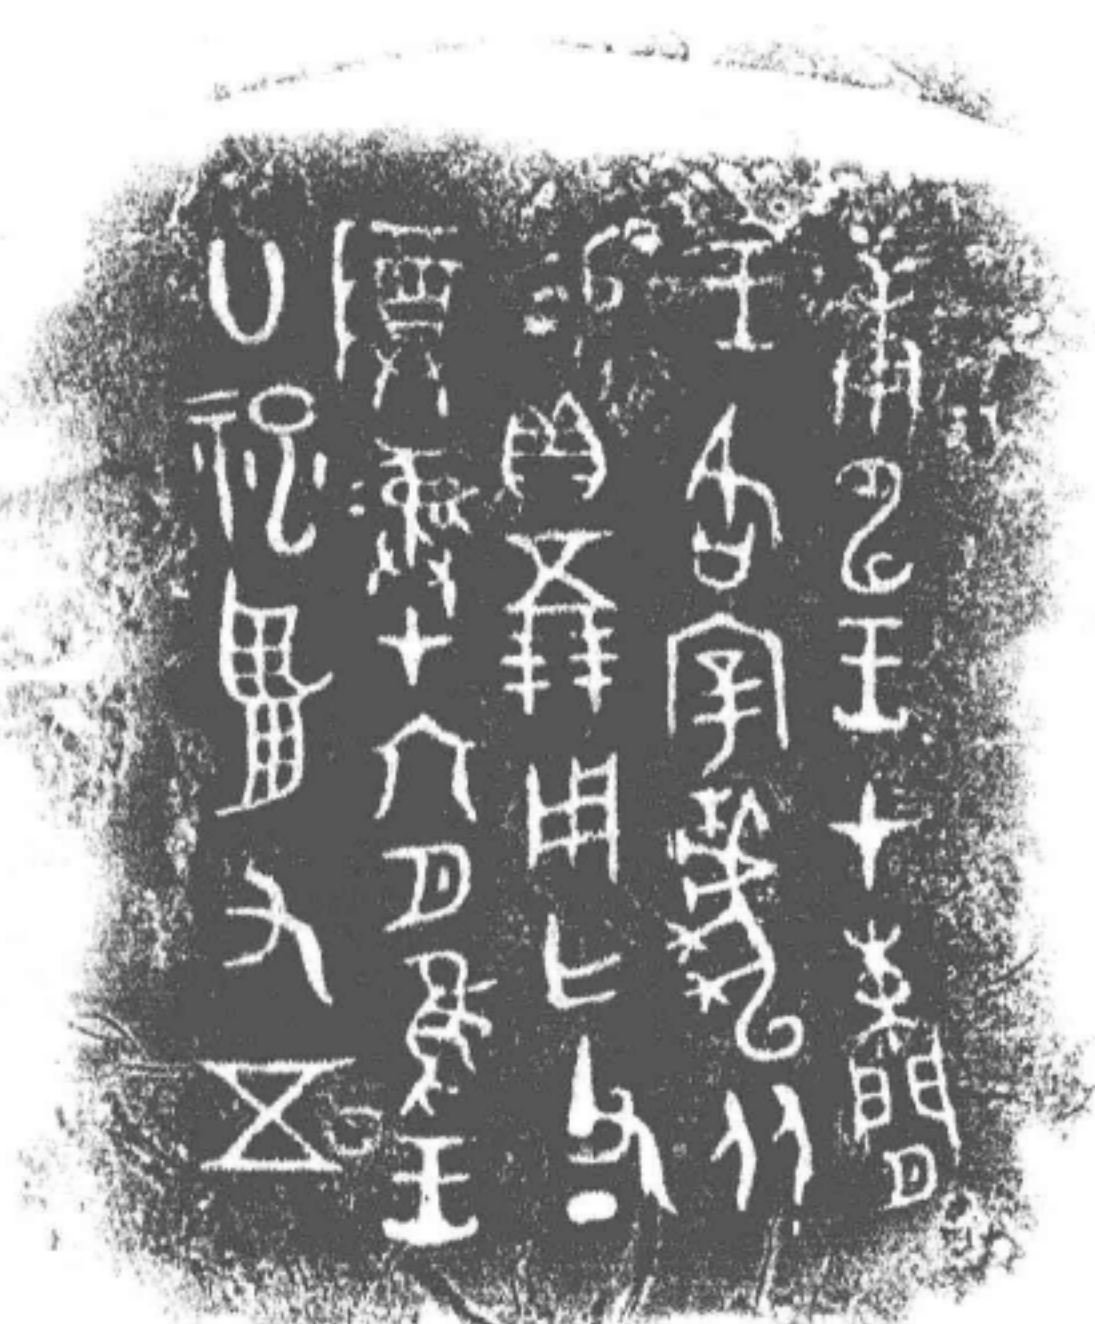 庚申王才闌
王各宰椃从
易貝五朋用乍父丁
𬯚彝才六月隹王
廿祀翌又五